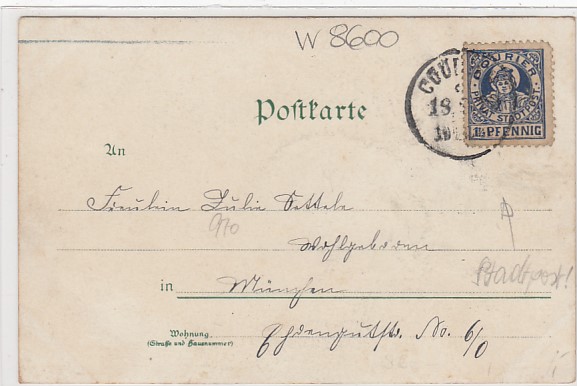 W 8600
COURIER
PRIVAT-STADTPOST
1½ PFENNIG
COURI
18
Postkarte
An
Fräulein Julie Settele
970
Wohlgeboren
Stadtpost!
in München
Wohnung
(Straße und Hausnummer)
No. 6/0